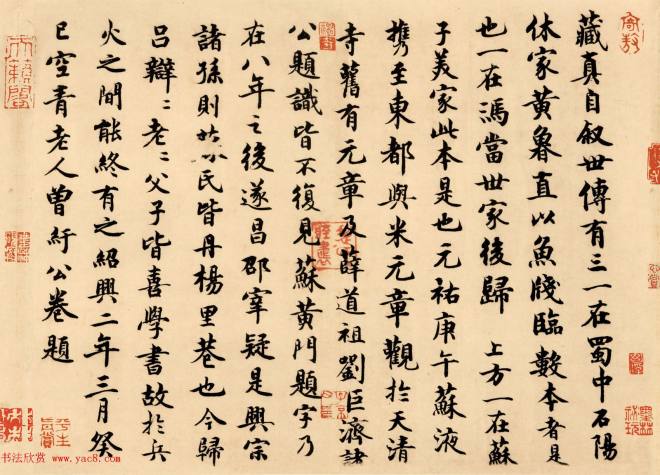 藏真自叙世傳有三一在蜀中石陽
休家黄魯直以魚牋臨數本者是
也一在馮當世家後歸 上方一在蘇
子美家此本是也元祐庚午蘇液
携至東都與米元章觀於天清
寺舊有元章及薛道祖劉巨濟諸
公題識皆不復見蘇黄門題字乃
在八年之後遂昌邵宰疑是興宗
諸孫則 氏皆丹楊里巷也今歸
吕辯:老:父子皆喜學書故於兵
火之間能終有之紹興二年三月癸
巳空青老人曾紆公卷題
书法欣赏 www.yac8.com